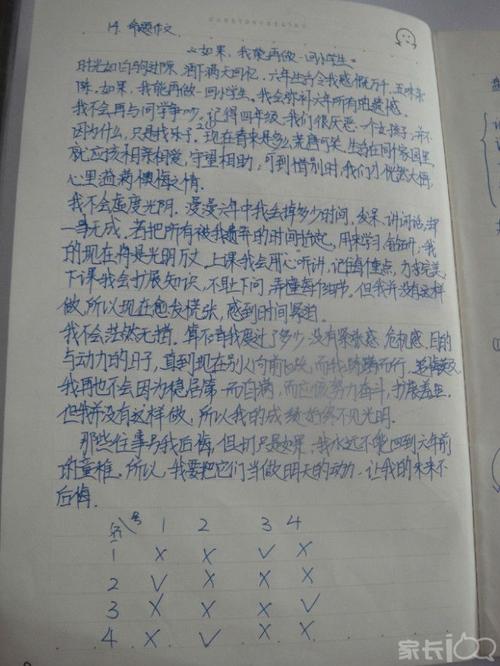 19. 命题作文
《如果,我能再做一回小学生》
时光如白驹过隙,洒下满大回忆,六年生活令我感慨万千,五味杂
陈。如果,我能再做一回小学生,我会弥补六年所有的遗憾。
我不会再与同学争吵。记得四年级,我们很厌恶一个女孩子,并不
因为什么,只是找乐子。现在看来是多么荒唐可笑,生活在同个家园里,
就应该相亲相爱,守望相助,可到惜别时,我们才恍然大悟,
心里溢满懊悔之情。
我不会虚度光阴。漫漫六年中我会掉多少时间,发呆、讲闲话,却
一事无成。若把所有被我的时间拾起,用来学习、钻研,我
的现在将是光明万丈。上课我会用心听讲,记住每个重点,力求完美,
下课我会扩展知识,不耻下问,弄懂每个细节。但我并没有这样
做,所以现在愈发慌张,感到时间紧迫。
我不会茫然无措。算不清我度过了多少没有紧张感、危机感、目的
与动力的日子,直到现在别人向前飞跃,而我蹒跚而行,
我再也不会因为稳居第一而自满,而应该努力奋斗,扩展思
但我并没有这样做,所以我的成绩始终不见光明。
那些往事与我后悔,但却只是如果,我永远不能回到六年前
的童稚。所以,我要把它们当做明天的动力,让我的未来不
后悔。
号 1 2 3 4
1 X X ✓ X
2 ✓ X X X
3 X X X ✓
4 X ✓ X X
家长100